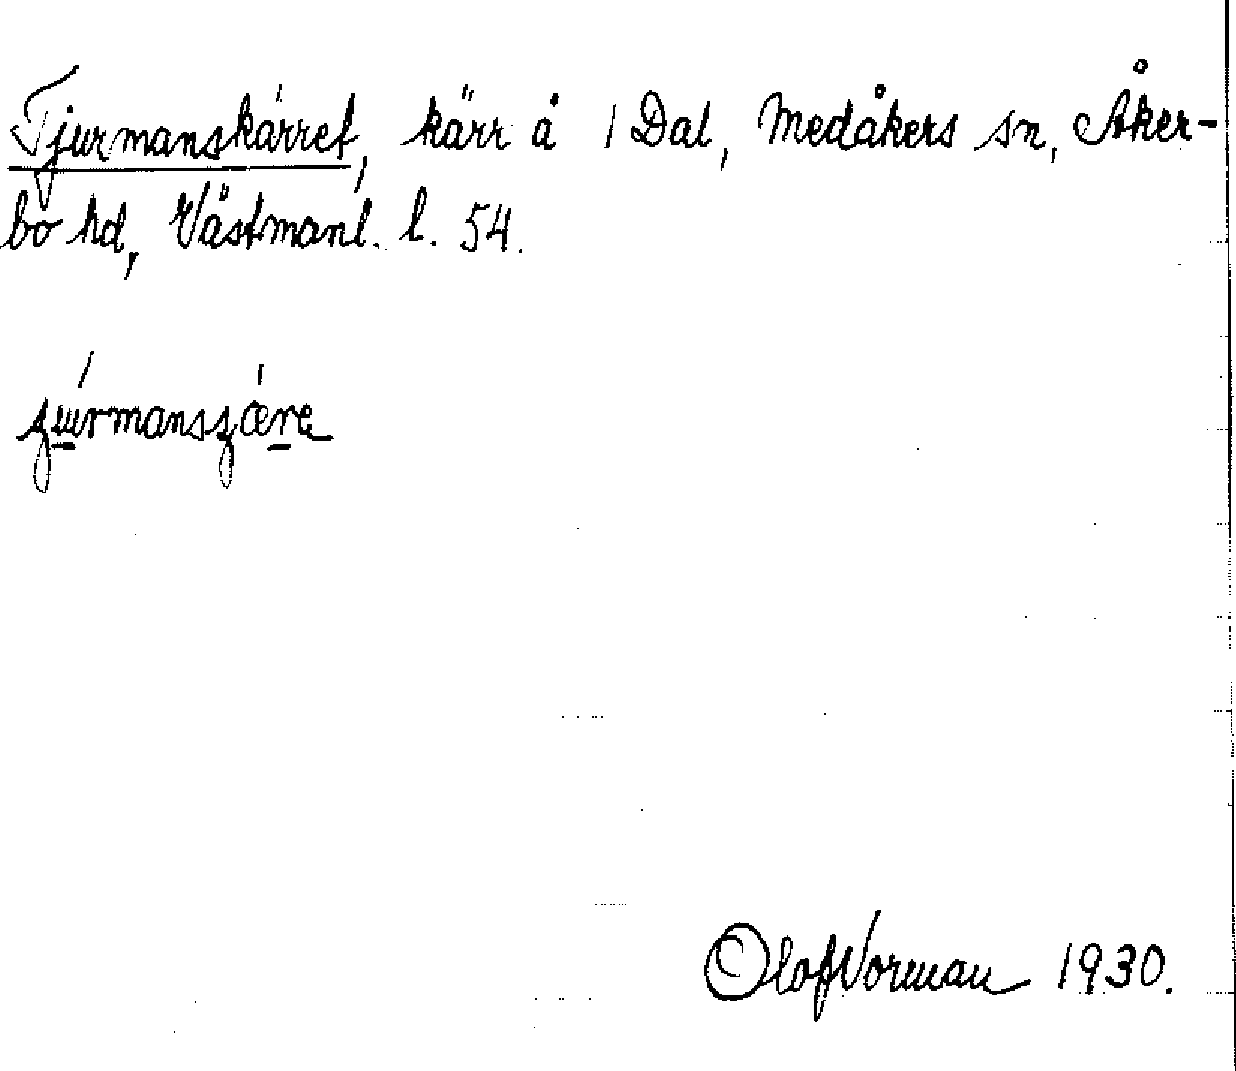 Tjurmanskärret, kärr å 1 Dal, Medåkers sn, Åker-
bo hd, Västmanl. l. 54.
Olof Norman 1930.